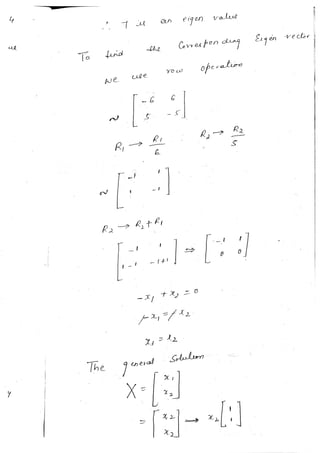 4
∴ 7 is an eigen value
To find the Corresponding Eigen vector
we use row operation
~ [ -6 6
5 -5 ]
R₁ → R₁/6 R₂ → R₂/5
~ [ -1 1
1 -1 ]
R₂ → R₂+R₁
[ -1 1
1-1 -1+1 ] ⇒ [ -1 1
0 0 ]
-x₁ + x₂ = 0
-x₁ = -x₂
x₁ = x₂
The general Solution
X = [ x₁
x₂ ]
= [ x₂
x₂ ] → x₂ [ 1
1 ]